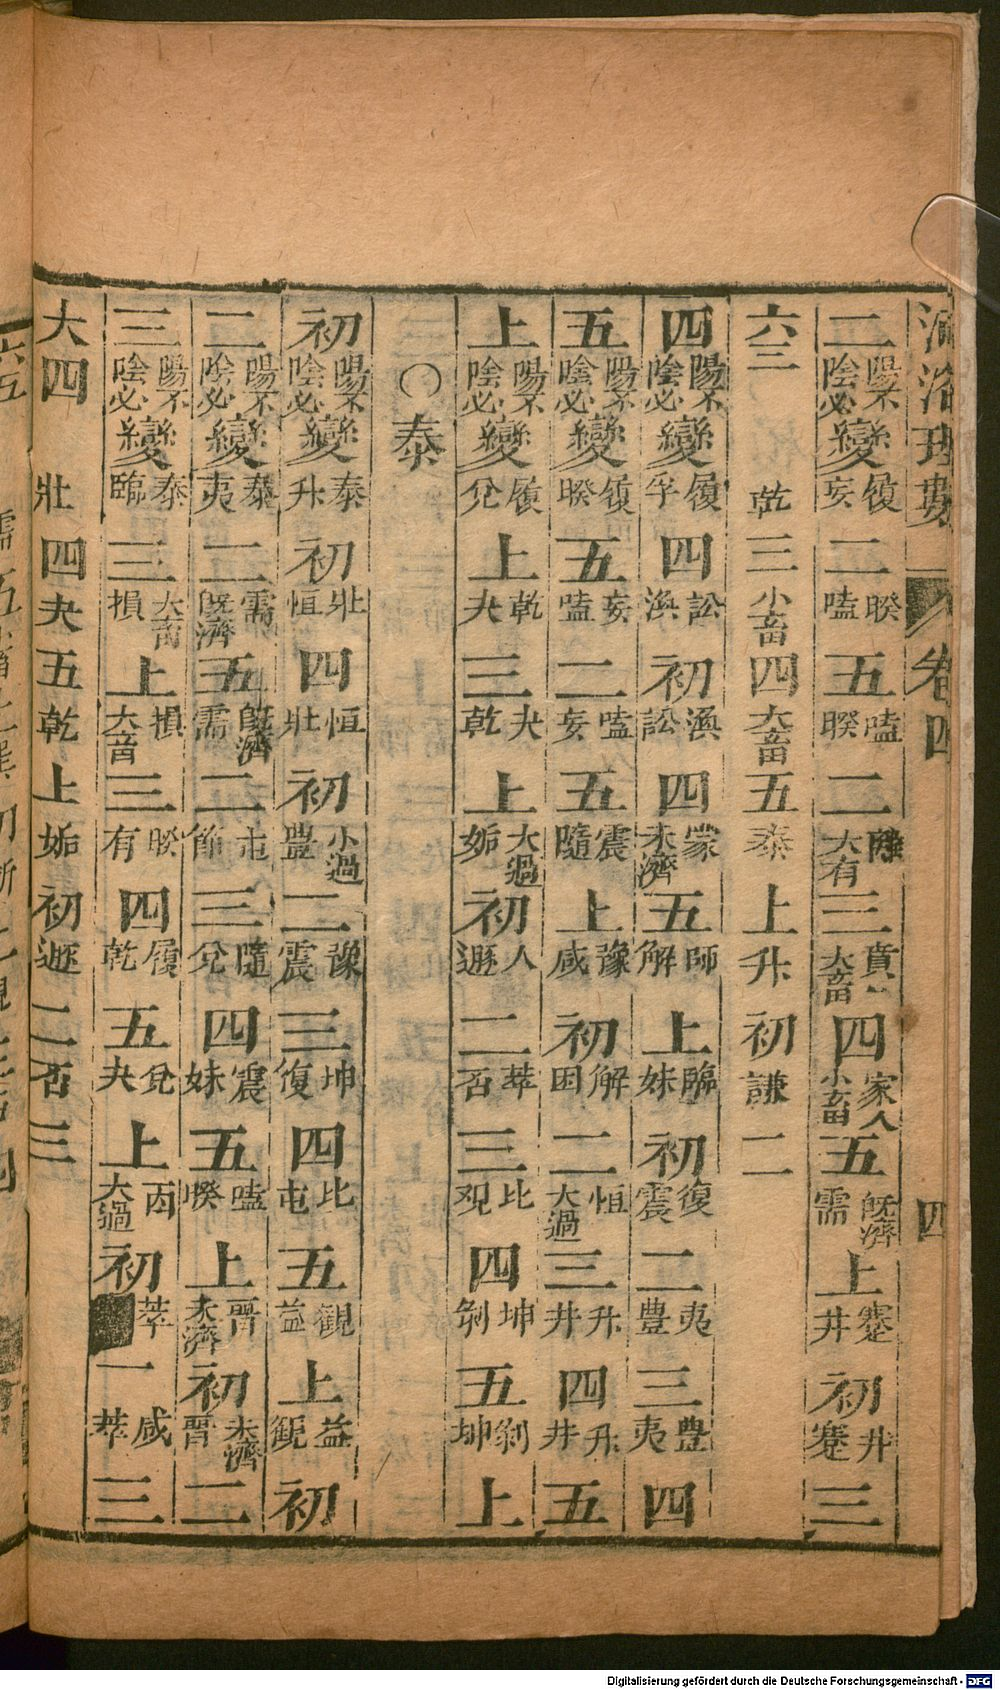 河洛理數 卷四 四
二陽不陰必變履妄二睽嗑五嗑睽二大有三賁大畜四家人小畜五既濟需上蹇井初井蹇三
六三 乾三小畜四大畜五泰上升初謙二
四陽不陰必變履孚四訟渙初渙訟四蒙未濟五師解上臨妹初復震二夷豊三豊夷四
五陽不陰必變履睽五妄嗑二嗑妄五震隨上豫咸初解困二恒大過三升井四升井五
上陽不陰必變履兌上乾夬三夬乾上大過姤初人遯二萃否三比观四坤剝五剝坤上
○泰
初陽不陰必變泰升初壯恒四恒壯初小過豊二豫震三坤復四比屯五観益上益観初
二陽不陰必變泰夷二需既濟五既濟需二屯節三隨兌四震妹五嗑睽上晉未濟初未濟晉二
三陽不陰必變泰臨三大畜損上損大畜三睽有四履乾五兌夬上大過初萃 咸萃三
大四 壯四夬五乾上姤初遯二否三
Digitalisierung gefördert durch die Deutsche Forschungsgemeinschaft - DFG